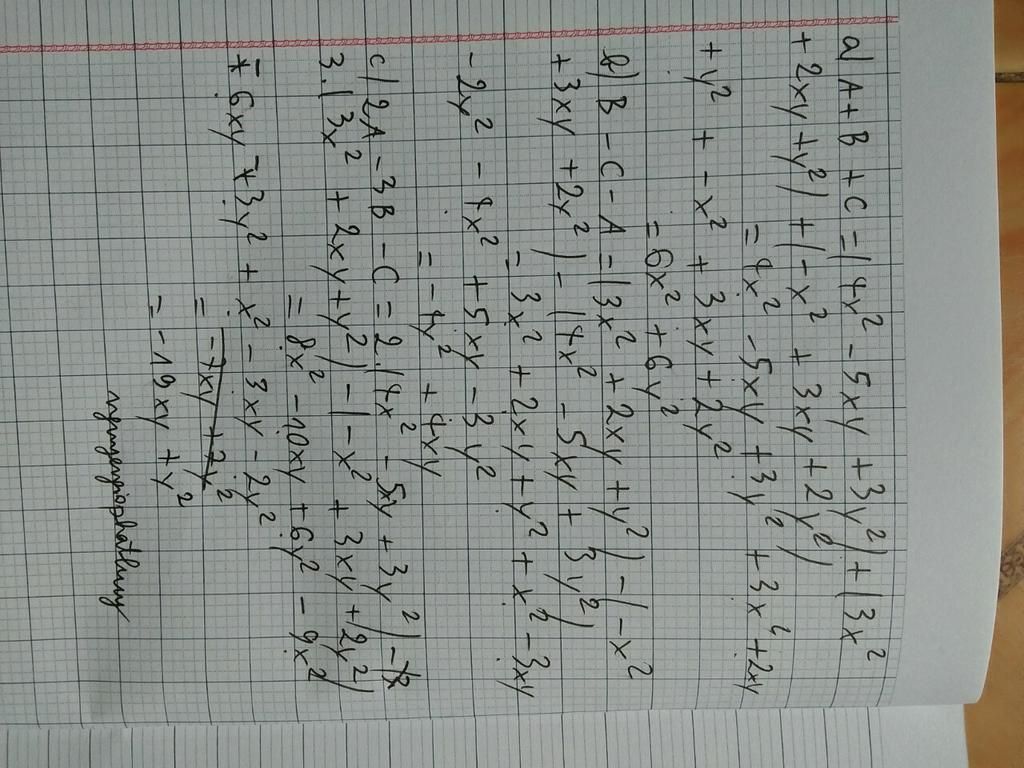 a) A+B+C=(4x² - 5xy + 3y²)+(3x²
+ 2xy + y²)+(-x² + 3xy + 2y²)
= 4x² - 5xy + 3y² + 3x² + 2xy
+ y² + -x² + 3xy + 2y²
= 6x² + 6y²
b) B - C - A = (3x² + 2xy + y²) - (-x²
+ 3xy + 2y²) - (4x² - 5xy + 3y²)
= 3x² + 2xy + y² + x² - 3xy
- 2y² - 4x² + 5xy - 3y²
= -4y² + 4xy
c) 2A - 3B - C = 2.(4x² - 5xy + 3y²) -
3.(3x² + 2xy + y²) - (-x² + 3xy + 2y²)
= 8x² - 10xy + 6y² - 9x²
- 6xy - 3y² + x² - 3xy - 2y²
= -7xy + 2y²
= -19xy + y²